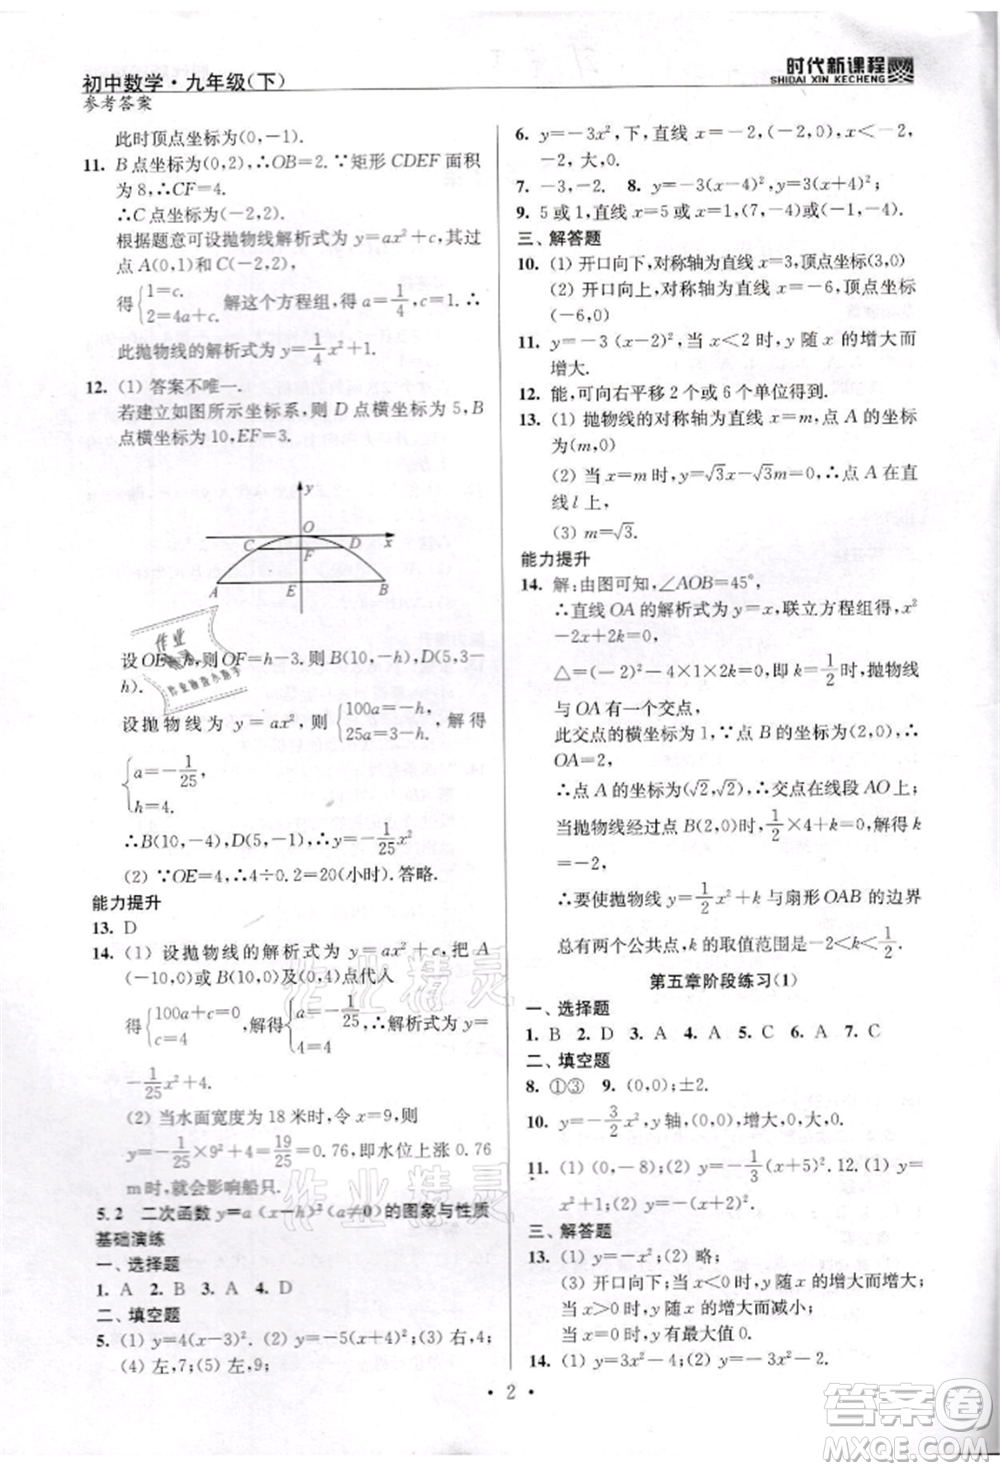 初中数学·九年级(下)
参考答案
时代新课程
SHIDAI XIN KECHENG
此时顶点坐标为(0,-1).
11. B 点坐标为(0,2),∴OB=2.∵矩形 CDEF 面积
为8,∴CF=4.
∴C 点坐标为(-2,2).
根据题意可设抛物线解析式为 y=ax²+c,其过
点 A(0,1)和 C(-2,2),
得{1=c. 2=4a+c. 解这个方程组,得 a=1/4,c=1. ∴
此抛物线的解析式为 y=1/4x²+1.
12. (1) 答案不唯一.
若建立如图所示坐标系,则 D 点横坐标为 5,B
点横坐标为 10,EF=3.
y
O
C F D x
A E B
设 OE=h,则 OF=h-3.则 B(10,-h),D(5,3-
h).
设抛物线为 y=ax²,则{100a=-h, 25a=3-h. 解得
{a=-1/25 h=4.
∴B(10,-4),D(5,-1) ∴y=-1/25x²
(2) ∵OE=4,∴4÷0.2=20(小时).答略.
能力提升
13. D
14. (1) 设抛物线的解析式为 y=ax²+c,把 A
(-10,0)及(-5,4)点代入
得{100a+c=0, 25a+c=3. 解得{a=-1/25, c=4. 解析式为 y=
-1/25x²+4.
(2) 当水面宽度为 18 米时,令 x=9,
y=-1/25×9²+4=19/25=0.76,即水位上升 0.76
m时,就会影响船只.
5.2 二次函数 y=a(x-h)²(a≠0)的图象与性质
基础演练
一、选择题
1. A 2. B 3. A 4. D
二、填空题
5. (1) y=4(x-3)² (2) y=-5(x+4)² (3) 右,4;
(4) 左,7;(5) 左,9;
6. y=-3x²,下,直线 x=-2,(-2,0),x<-2,
-2,大,0.
7. -3,-2. 8. y=-3(x-4)²,y=3(x+4)²;
9. 5 或 1,直线 x=5 或 x=1,(7,-4)或(-1,-4).
三、解答题
10. (1) 开口向下,对称轴为直线 x=3,顶点坐标(3,0)
(2) 开口向上,对称轴为直线 x=-6,顶点坐标
(-6,0)
11. y=-3(x-2)²;当 x<2 时,y 随 x 的增大而
增大.
12. 能,可向右平移 2 个或 6 个单位得到.
13. (1) 抛物线的对称轴为直线 x=m,点 A 的坐标
为(m,0)
(2) 当 x=m 时,y=√3x-√3m=0,∴点 A 在直
线 l 上,
(3) m=√3.
能力提升
14. 解:由图可知,∠AOB=45°,
∴直线 OA 的解析式为 y=x,联立方程组得,x²
-2x+2k=0,
△=(-2)²-4×1×2k=0,即 k=1/2时,抛物线
与 OA 有一个交点,
此交点的横坐标为 1,∵点 B 的坐标为(2,0),∴
OA=2,
∴点 A 的坐标为(√2,√2),∴交点在线段 AO 上;
当抛物线经过点 B(2,0)时,1/2×4+k=0,解得 k=
-2,
∴要使抛物线 y=1/2x²+k 与扇形 OAB 的边界
总有两个公共点,k 的取值范围是-2<k<1/2.
第五章阶段练习(1)
一、选择题
1. B 2. D 3. A 4. A 5. C 6. A 7. C
二、填空题
8. ①③ 9. (0,0);±2.
10. y=-3/2x²,y 轴,(0,0),增大,0,大,0.
11. (1) (2) (4) 12. (1) y=-1/3(x+5)²;(2) y=
4x²+1;(3) y=4(x-1)²
三、解答题
13. (1) y=-x²;(2) 略;
(3) 开口向下;当 x<0 时,y 随 x 的增大而增大;
当 x>0 时,y 随 x 的增大而减小;
当 x=0 时,y 有最大值 0.
14. (1) y=3x²-4 (2) y=-3x-2.
· 2 ·
作业精灵
作业精灵
答案卷
MXQE.COM